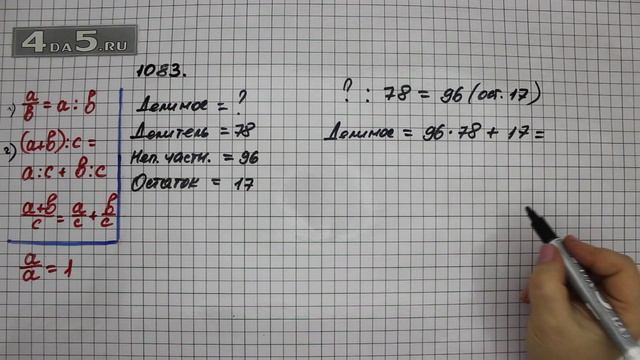 4DA5.RU
1083.
1) a/b = a : b
2) (a+b) : c =
a : c + b : c
a+b/c = a/c + b/c
a/a = 1
Делимое = ?
Делитель = 78
Неп. частн. = 96
Остаток = 17
? : 78 = 96 (ост. 17)
Делимое = 96 · 78 + 17 =